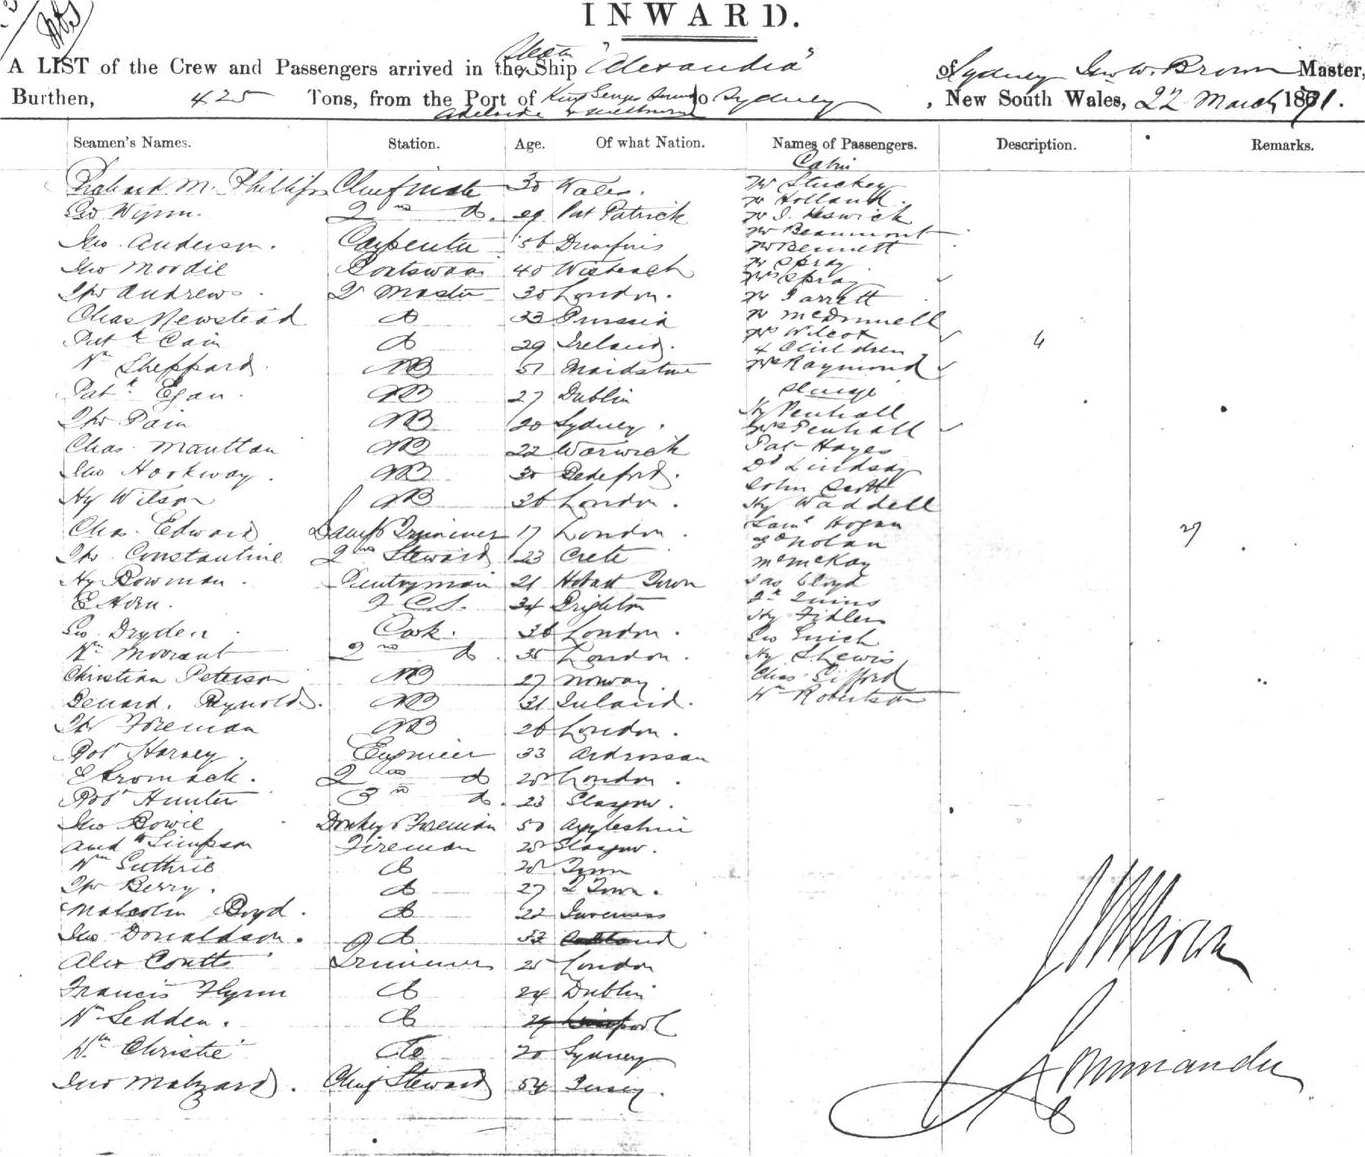 INWARD.
A LIST of the Crew and Passengers arrived in the Ship "Alexandra" of Sydney Geo W. Brown Master,
Burthen, 425 Tons, from the Port of King George Sound to Sydney, New South Wales, 22 March 1871.
Adelaide & Melbourne
Seamen's Names. Station. Age. Of what Nation. Names of Passengers. Description. Remarks.
Cabin
Richard M. Phillips Chief mate 30 Wales. Mr Stuckey
Mr Holland
Geo Wynn. 2nd do. Pat Patrick
Mr Beaumont
Jno. Anderson. Carpenter 56 Dumfries Mr Bennett
Mr Spray
Jno Moodie Boatswain 40 Wisbeach Mrs Spray
Thos Andrews 2r Master 30 London. Mr Jarrett
Chas Newstead do 33 Prussia Mr McDonnell
Mrs Wilcox
Patk Cain do 29 Ireland. 4 Children 4
Wm Sheppard. AB 51 Maidstone Mrs Raymond
Steerage
Patk Egan. AB 27 Dublin
Hy Penhall
Thos Pain AB 20 Sydney. Mrs Penhall
Chas Mantton AB 22 Warwick Pat Hayes
Jno Hookway. AB 30 Bedeford. Dd Lindsay
John Scott
Hy Wilson AB 36 London. Hy Waddell
Saml Hogan
Chas. Edward Lamp Trimmer 17 London. Nolan 27
Thos Constantine 2nd Steward 23 Crete McMcKay
Hy Bowman. Pantryman 21 Hobart Town Jas Lloyd
E Horn. F.C.S. 34 Brighton
Hy Fidler
Geo Dryden Cook. 36 London.
Wm Moorant 2nd do. 35 London. Hy Shewis
Christian Peterson AB 27 Norway Chas Gifford
Genard. Reynolds. AB 31 Ireland. Wm Robertson
Thos Foreman AB 26 London.
Robt Harvey. Engineer 33 Ardrossan
E Cromack. 2nd do London.
Robt Hunter 3rd do. 23 Glasgow.
Jno Bowie Donkey & Foreman 50 Argyleshire
Andw Simpson Fireman Glasgow.
Wm Guthrie do
Thos Berry. do 27
Malcolm Boyd. do 22 Inverness
Jno Donaldson. do
Alex Coutts Trimmer 25 London
Francis Flynn do 24 Dublin
Wm Seddon. do 29 Liverpool
Wm Christie do 20 Sydney
Jno Malzard. Chief Steward 54 Jersey.
Commander